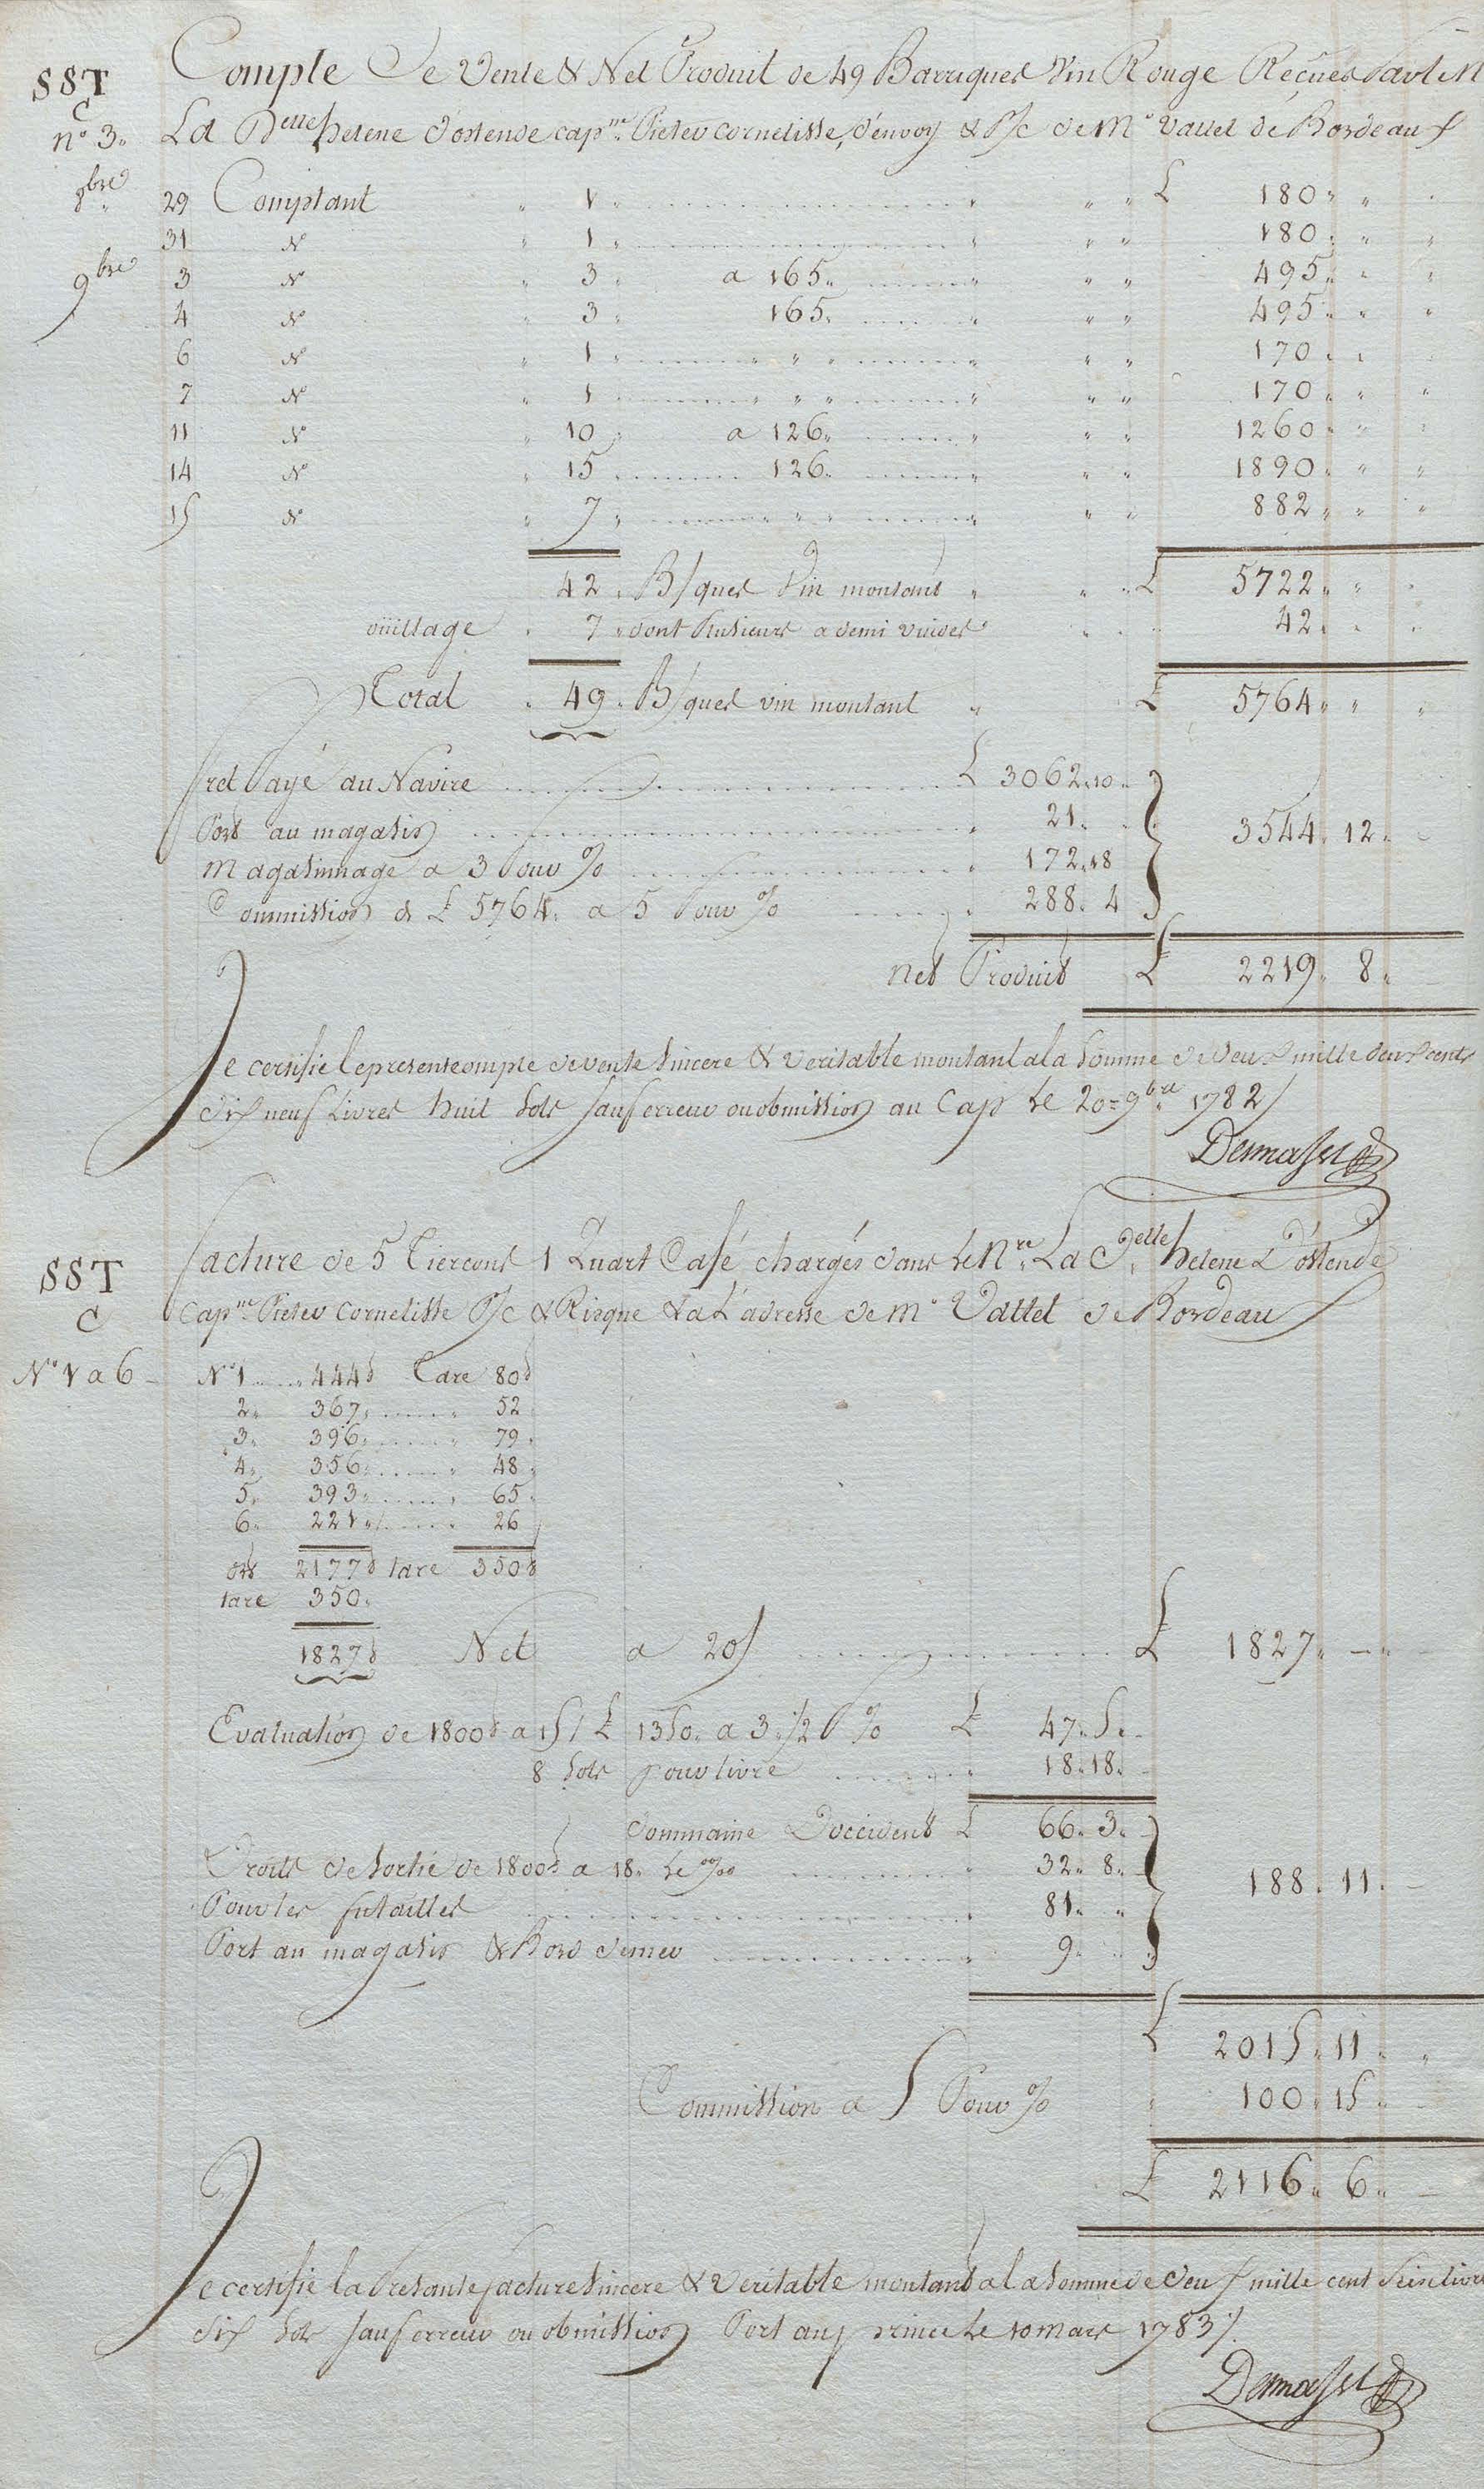 SST Compte De Vente & Net Produit de 49 Barriques Vin Rouge Reçues Par le N
C
n° 3. La Delle helene d'ostende capne. Pieter cornelisse, d'envoy & P/c de Mr Vattel de Bordeaux
8bre 29 Comptant 1 £ 180
31 N° 1 180
9bre 3 N° 3 a 165 495
4 N° 3 165 495
6 N° 1 " " 170
7 N° 1 " " " 170
11 N° 10 a 126 1260
14 N° 15 126 1890
15 N° 7 " " 882
42 B/ques Vin montant £ 5722
ouillage 7 dont Plusieurs a demi vuides 42
Total 49 B/ques vin montant £ 5764
fret Payé au Navire £ 3062.10
Port au magasin 21 3544. 12
Magasinnage a 3 Pour % 172.18
Commission de £ 5764 a 5 Pour % 288. 4
net Produit £ 2219. 8
Je certifie le present compte de vente Sincere & veritable montant a la Somme de deux mille deux cents
dix neuf Livres huit Sols Sauf erreur ou obmission au Cap Le 20 = 9bre 1782
Desmasset
SST facture de 5 Tiercons 1 Quart Café chargés dans le Nre La Delle helene D'ostende
C Capne. Pieter cornelisse P/c & Risque & a L'adresse de Mr Vattel de Bordeaux
N° 1 a 6 N° 1 444 Tare 80
2 367 52
3 396 79
4 356 48
5 393 65
6 221 26
ort 2177 tare 350
tare 350
1827 Net a 20/ £ 1827
Evaluation de 1800 a 15/ £ 1350 a 3 1/2 P % £ 47. 5
8 Sols pour livre 18.18
Dommaine D'occident £ 66. 3
Droits de Sortie de 1800 a 18 le %00 32. 8 188. 11
Pour les futailles 81
Port au magasin & Bord de mer 9
£ 2015. 11
Commission a 5 Pour % 100. 15
£ 2116. 6
Je certifie la Presante facture Sincere & Veritable montant a la Somme de deux mille cent Seize livres
six Sols Sauf erreur ou obmission Port au prince le 10 mars 1783
Desmasset